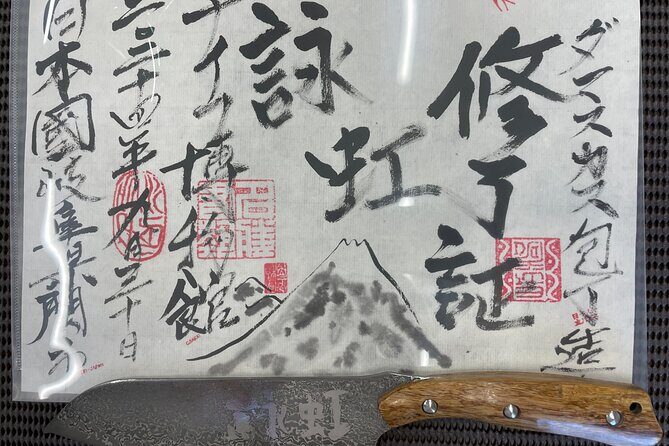 ダマスカス包丁造
修了証
詠虹
ナイフ博物館
二十四年九月三十日
日本國岐阜県関市
詠虹